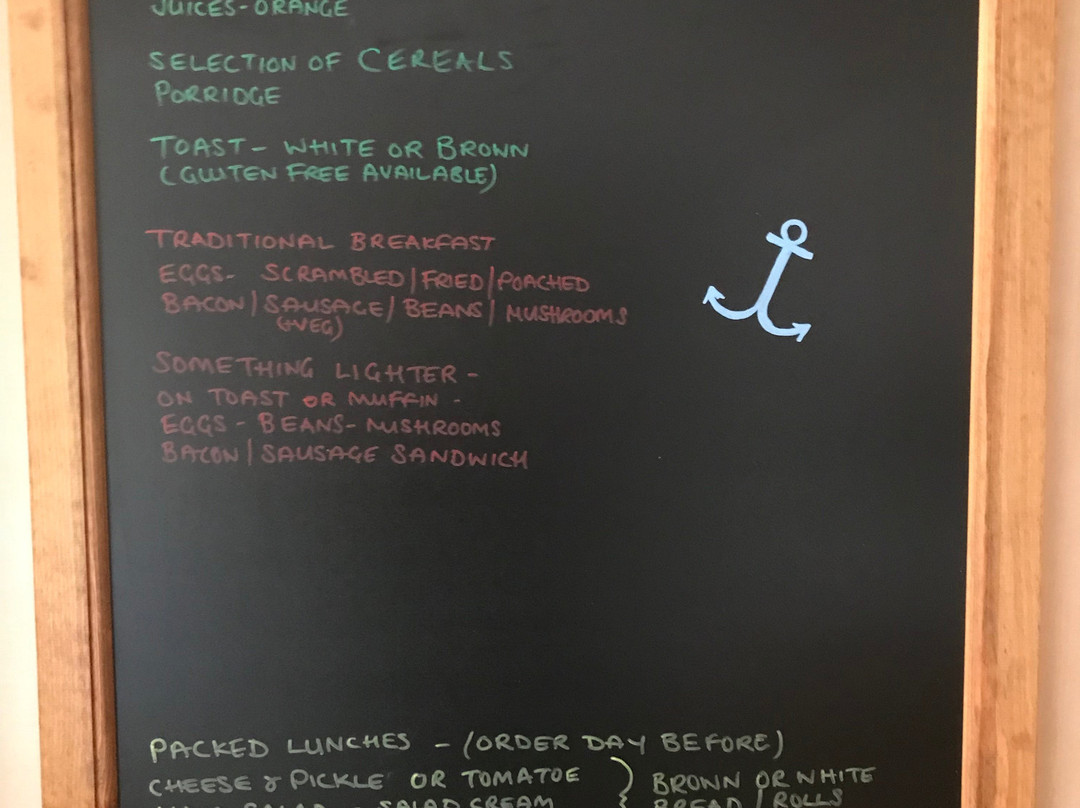 JUICES-ORANGE
SELECTION OF CEREALS
PORRIDGE
TOAST- WHITE OR BROWN
(GLUTEN FREE AVAILABLE)
TRADITIONAL BREAKFAST
EGGS- SCRAMBLED/FRIED/POACHED
BACON/SAUSAGE/BEANS/MUSHROOMS
(+VEG)
SOMETHING LIGHTER -
ON TOAST OR MUFFIN -
EGGS - BEANS- MUSHROOMS
BACON/SAUSAGE SANDWICH
PACKED LUNCHES - (ORDER DAY BEFORE)
CHEESE & PICKLE OR TOMATOE } BROWN OR WHITE
SALAD SALAD CREAM BREAD / ROLLS